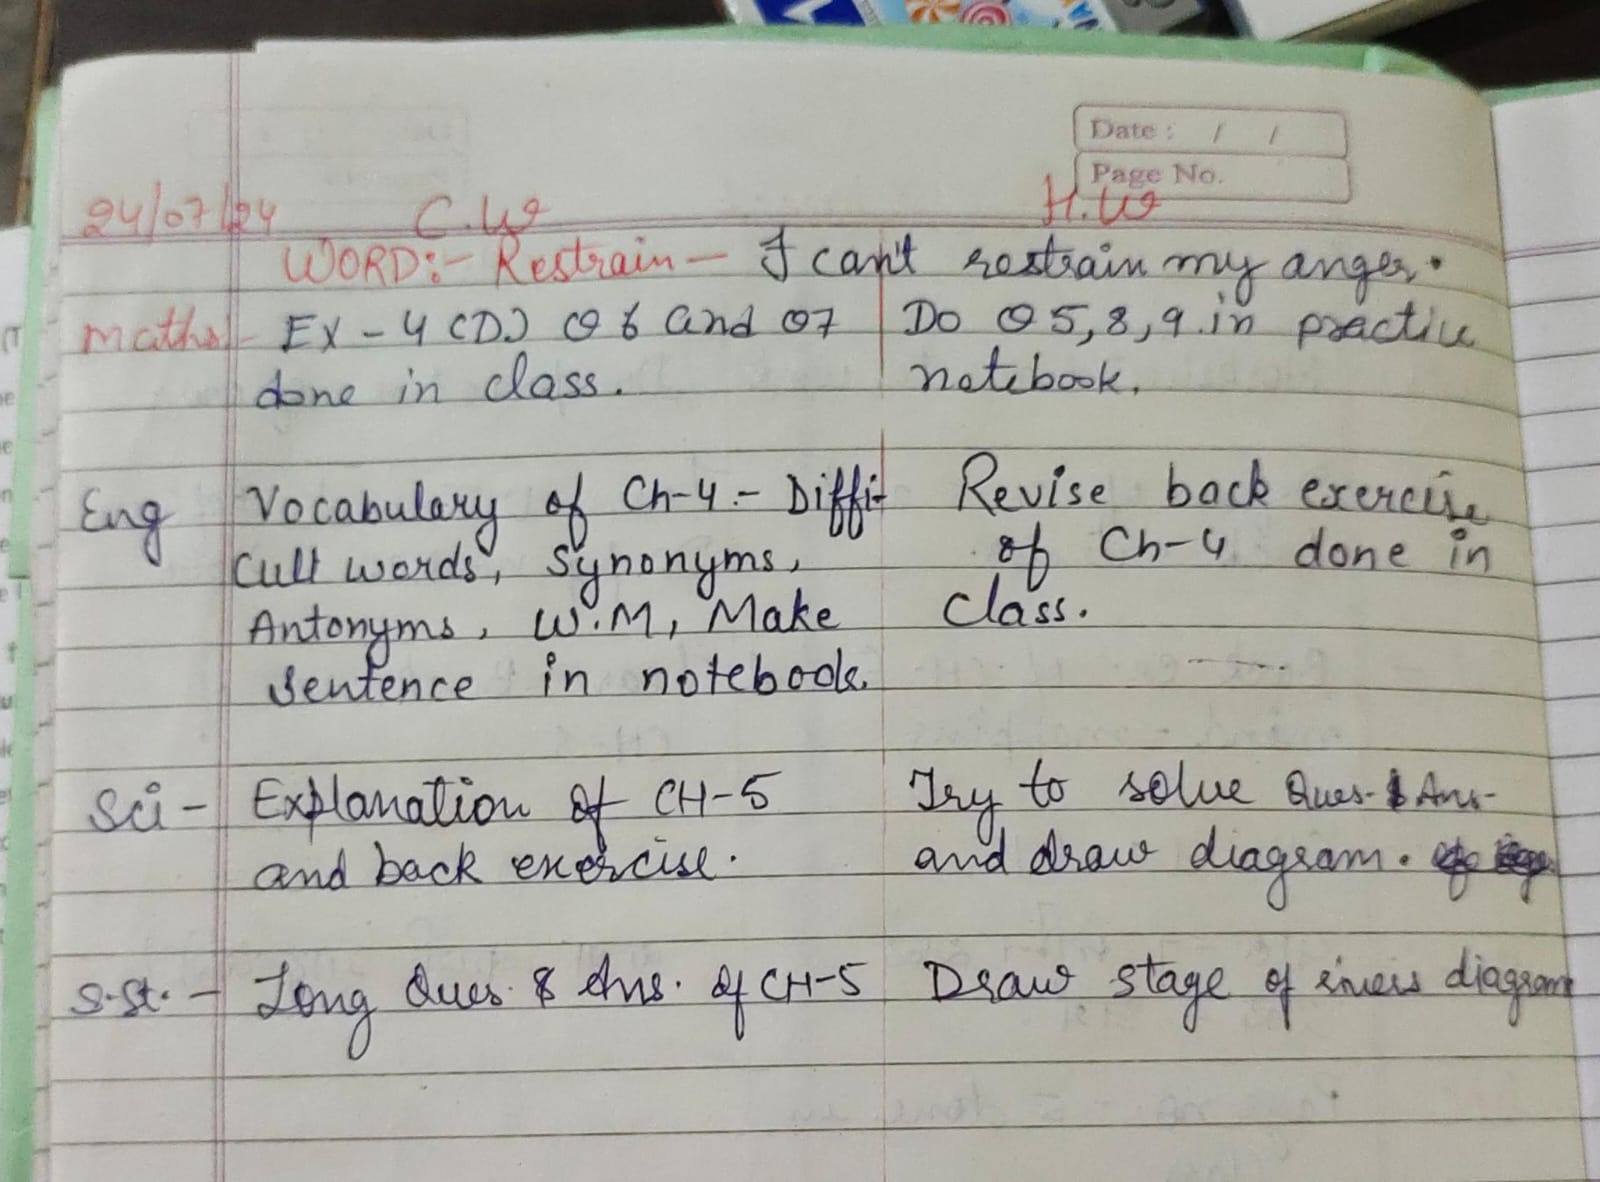 Date : / /
Page No.
24/07/24 C.W H.W
WORD:- Restrain - I can't restrain my anger.
Maths - Ex - 4 (D) Q 6 and Q7 Do Q 5, 8, 9 in practice
done in class. notebook.
Eng Vocabulary of Ch-4 :- Diffi- Revise back exercise
cult words, Synonyms, of Ch-4 done in
Antonyms, W.M, Make Class.
sentence in notebook.
Sci - Explanation of CH-5 Try to solve Ques. & Ans.
and back exercise. and draw diagram.
S.St. - Long Ques. & Ans. of CH-5 Draw stage of diagram